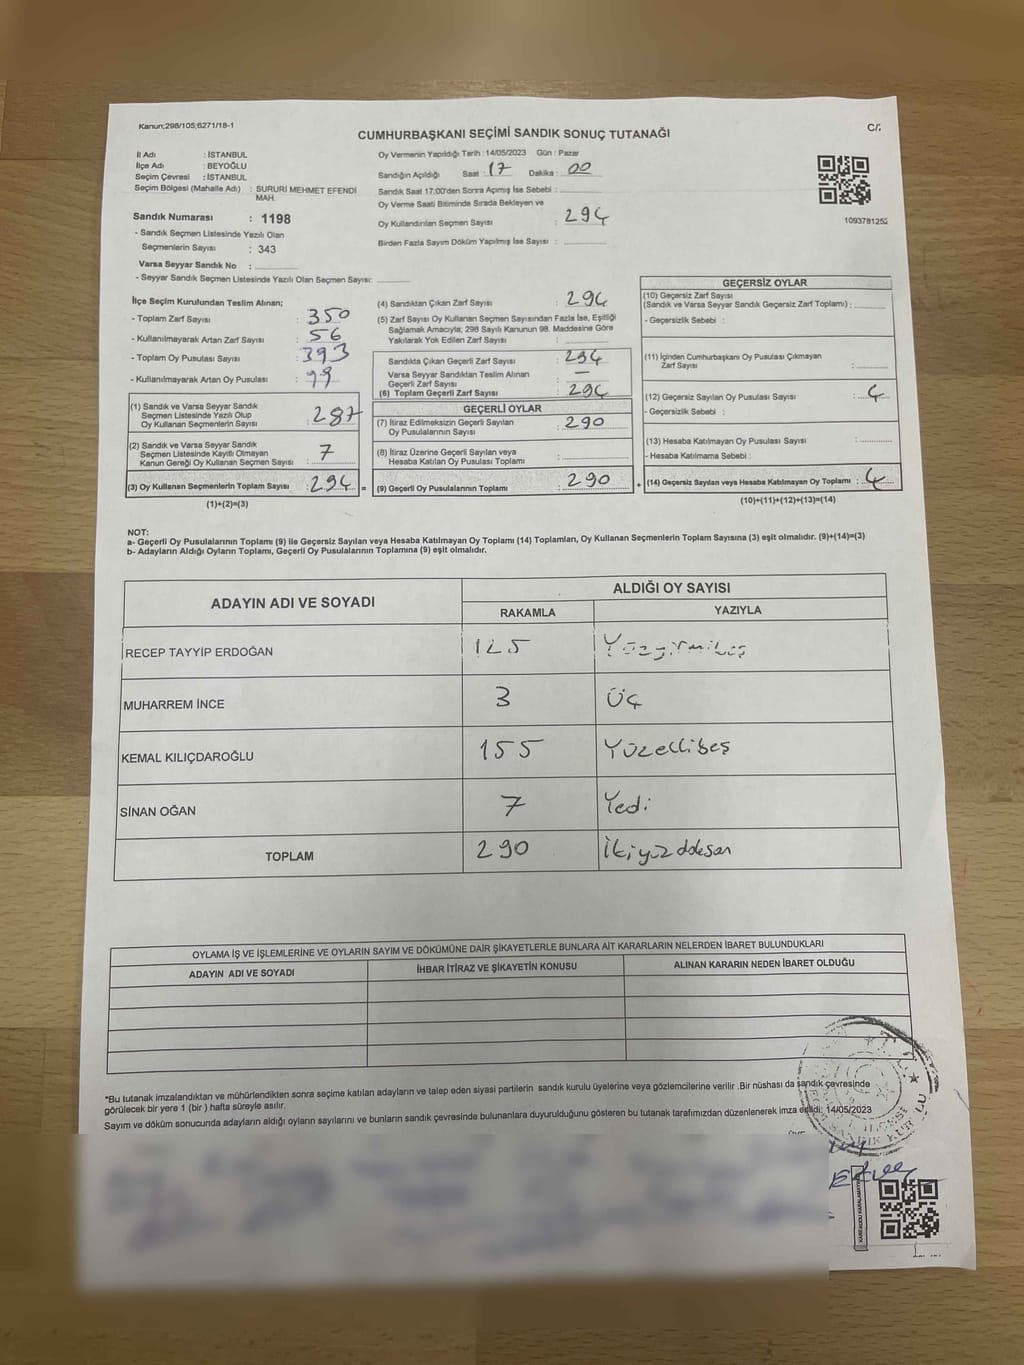 Kanun;298/105;6271/18-1
C/
CUMHURBAŞKANI SEÇİMİ SANDIK SONUÇ TUTANAĞI
İl Adı : İSTANBUL
İlçe Adı : BEYOĞLU
Seçim Çevresi : İSTANBUL
Seçim Bölgesi (Mahalle Adı) : SURURİ MEHMET EFENDİ
MAH.
Sandık Numarası : 1198
- Sandık Seçmen Listesinde Yazılı Olan
Seçmenlerin Sayısı : 343
Varsa Seyyar Sandık No :
- Seyyar Sandık Seçmen Listesinde Yazılı Olan Seçmen Sayısı:
Oy Vermenin Yapıldığı Tarih : 14/05/2023 Gün : Pazar
Sandığın Açıldığı Saat : 17 Dakika : 00
Sandık Saat 17:00'den Sonra Açımış İse Sebebi :
Oy Verme Saati Bitiminde Sırada Bekleyen ve
Oy Kullandırılan Seçmen Sayısı : 294
Birden Fazla Sayım Döküm Yapılmış İse Sayısı :
1093781252
İlçe Seçim Kurulundan Teslim Alınan;
- Toplam Zarf Sayısı : 350
- Kullanılmayarak Artan Zarf Sayısı : 56
- Toplam Oy Pusulası Sayısı : 393
- Kullanılmayarak Artan Oy Pusulası : 99
(1) Sandık ve Varsa Seyyar Sandık
Seçmen Listesinde Yazılı Olup
Oy Kullanan Seçmenlerin Sayısı : 287
(2) Sandık ve Varsa Seyyar Sandık
Seçmen Listesinde Kayıtlı Olmayan
Kanun Gereği Oy Kullanan Seçmen Sayısı : 7
(3) Oy Kullanan Seçmenlerin Toplam Sayısı : 294 =
(1)+(2)=(3)
(4) Sandıktan Çıkan Zarf Sayısı : 294
(5) Zarf Sayısı Oy Kullanan Seçmen Sayısından Fazla İse, Eşitliği
Sağlamak Amacıyla; 298 Sayılı Kanunun 98. Maddesine Göre
Yakılarak Yok Edilen Zarf Sayısı :
Sandıkta Çıkan Geçerli Zarf Sayısı : 294
Varsa Seyyar Sandıktan Teslim Alınan
Geçerli Zarf Sayısı : —
(6) Toplam Geçerli Zarf Sayısı : 294
GEÇERLİ OYLAR
(7) İtiraz Edilmeksizin Geçerli Sayılan
Oy Pusulalarının Sayısı : 290
(8) İtiraz Üzerine Geçerli Sayılan veya
Hesaba Katılan Oy Pusulası Toplamı :
(9) Geçerli Oy Pusulalarının Toplamı : 290 +
GEÇERSİZ OYLAR
(10) Geçersiz Zarf Sayısı
(Sandık ve Varsa Seyyar Sandık Geçersiz Zarf Toplamı) :
- Geçersizlik Sebebi :
(11) İçinden Cumhurbaşkanı Oy Pusulası Çıkmayan
Zarf Sayısı :
(12) Geçersiz Sayılan Oy Pusulası Sayısı : 4
- Geçersizlik Sebebi :
(13) Hesaba Katılmayan Oy Pusulası Sayısı :
- Hesaba Katılmama Sebebi :
(14) Geçersiz Sayılan veya Hesaba Katılmayan Oy Toplamı : 4
(10)+(11)+(12)+(13)=(14)
NOT:
a- Geçerli Oy Pusulalarının Toplamı (9) ile Geçersiz Sayılan veya Hesaba Katılmayan Oy Toplamı (14) Toplamları, Oy Kullanan Seçmenlerin Toplam Sayısına (3) eşit olmalıdır. (9)+(14)=(3)
b- Adayların Aldığı Oyların Toplamı, Geçerli Oy Pusulalarının Toplamına (9) eşit olmalıdır.
ADAYIN ADI VE SOYADI ALDIĞI OY SAYISI
RAKAMLA YAZIYLA
RECEP TAYYİP ERDOĞAN 125 Yüzyirmibeş
MUHARREM İNCE 3 Üç
KEMAL KILIÇDAROĞLU 155 Yüzellibeş
SİNAN OĞAN 7 Yedi
TOPLAM 290 İkiyüzdoksan
OYLAMA İŞ VE İŞLEMLERİNE VE OYLARIN SAYIM VE DÖKÜMÜNE DAİR ŞİKAYETLERLE BUNLARA AİT KARARLARIN NELERDEN İBARET BULUNDUKLARI
ADAYIN ADI VE SOYADI İHBAR İTİRAZ VE ŞİKAYETİN KONUSU ALINAN KARARIN NEDEN İBARET OLDUĞU
*Bu tutanak imzalandıktan ve mühürlendikten sonra seçime katılan adayların ve talep eden siyasi partilerin sandık kurulu üyelerine veya gözlemcilerine verilir .Bir nüshası da sandık çevresinde
görülecek bir yere 1 (bir ) hafta süreyle asılır.
Sayım ve döküm sonucunda adayların aldığı oyların sayılarını ve bunların sandık çevresinde bulunanlara duyurulduğunu gösteren bu tutanak tarafımızdan düzenlenerek imza edildi: 14/05/2023
KAREKODU KARALAMAYINIZ